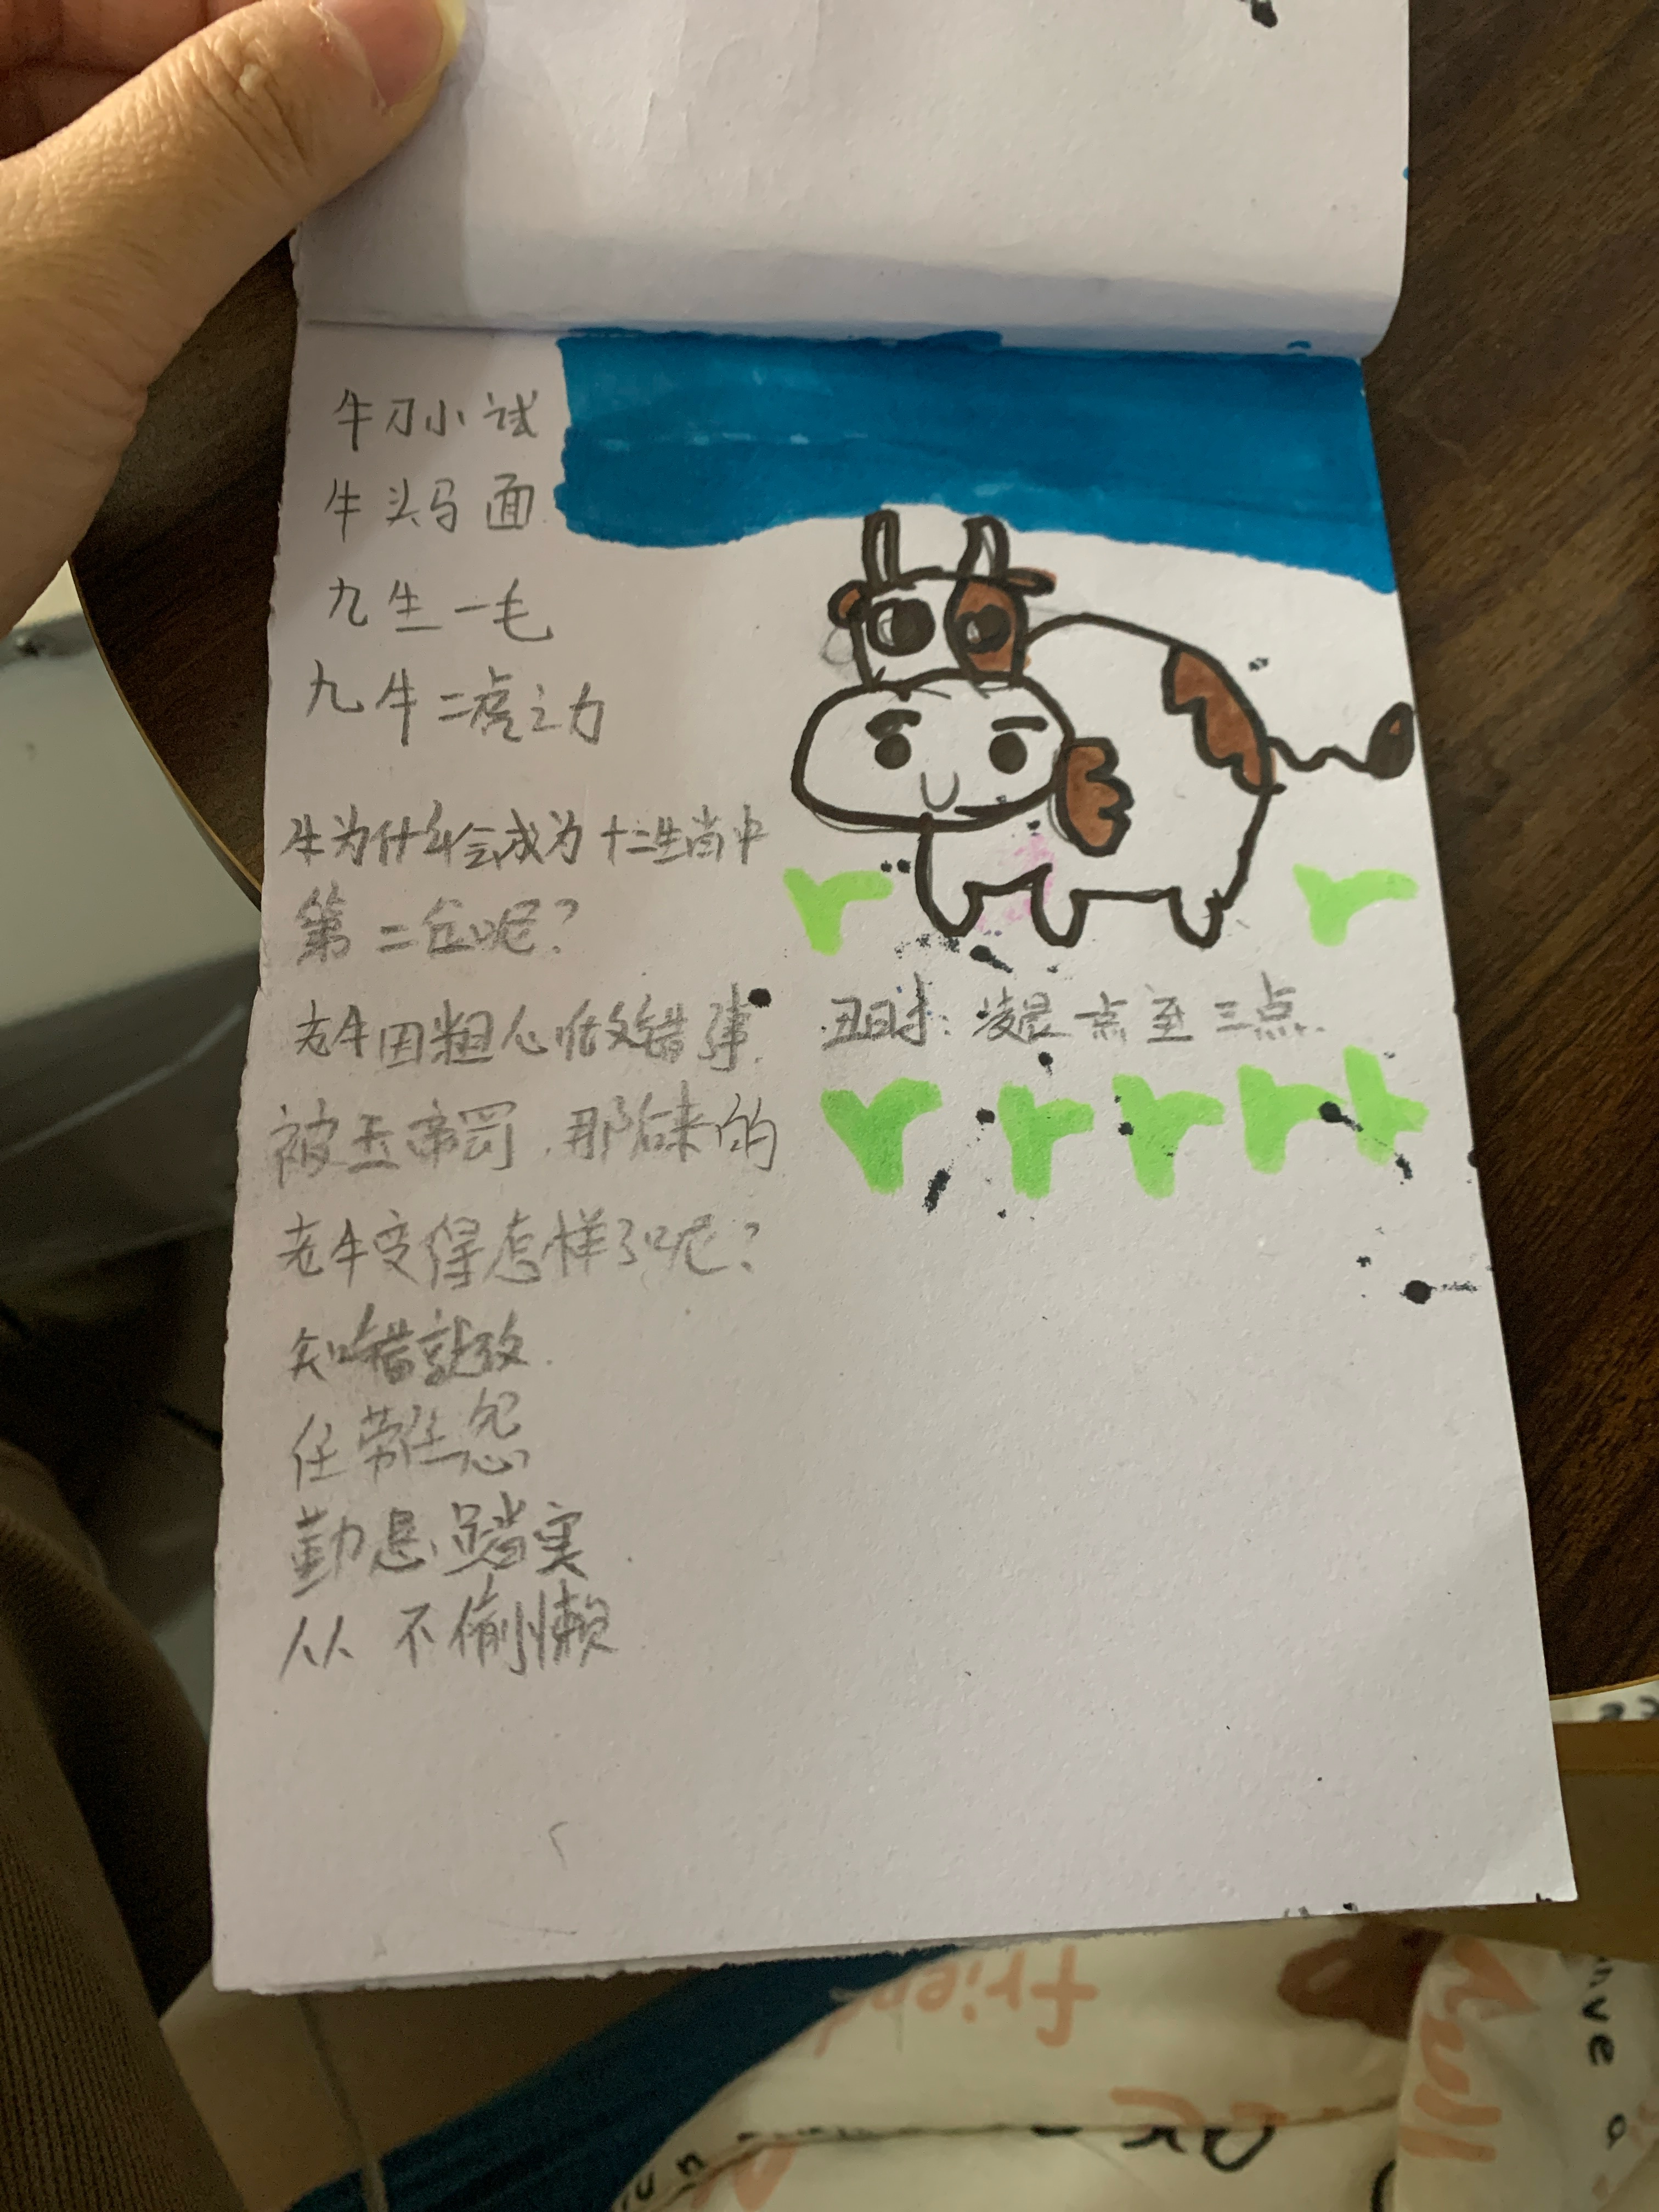 牛刀小试
牛头马面
九生一毛
九牛二虎之力
牛为什么会成为十二生肖中
第二位呢?
老牛因粗心做错事.
被玉帝罚.那后来的
老牛变得怎样了呢?
知错就改.
任劳任怨
勤恳踏实.
从不偷懒
丑时:凌晨一点至三点.
friend